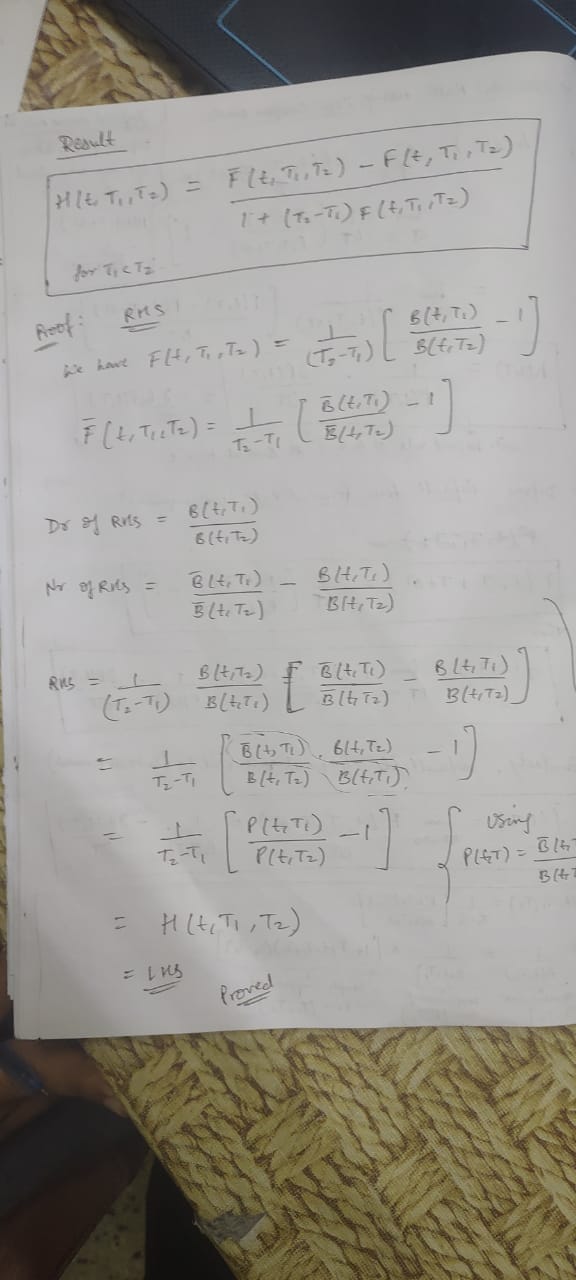 Result
H(t, T₁, T₂) = F̄(t, T₁, T₂) − F(t, T₁, T₂) / 1 + (T₂−T₁) F(t, T₁, T₂)
for T₁ < T₂
Proof: RHS
We have F(t, T₁, T₂) = 1/(T₂−T₁) [ B(t,T₁)/B(t,T₂) − 1 ]
F̄(t, T₁, T₂) = 1/T₂−T₁ [ B̄(t,T₁)/B̄(t,T₂) − 1 ]
Dr of RHS = B(t,T₁)/B(t,T₂)
Nr of RHS = B̄(t,T₁)/B̄(t,T₂) − B(t,T₁)/B(t,T₂)
RHS = 1/(T₂−T₁) B(t,T₂)/B(t,T₁) [ B̄(t,T₁)/B̄(t,T₂) − B(t,T₁)/B(t,T₂) ]
= 1/T₂−T₁ [ B̄(t,T₁)/B(t,T₂) · B(t,T₂)/B(t,T₁) − 1 ]
= 1/T₂−T₁ [ P(t,T₁)/P(t,T₂) − 1 ] { Using
P(t,T) = B̄(t,T/B(t,T
= H(t, T₁, T₂)
= LHS
Proved